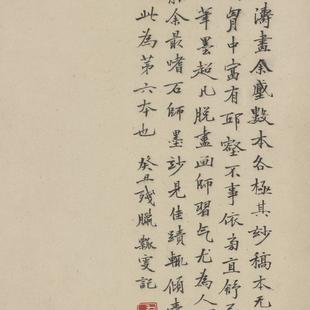 濤畫余藏數本各極其妙稿本无
胷中富有邱壑不事依旁直舒
筆墨超凡脫盡画師習气尤為人
余最嗜石師墨妙見佳蹟輒傾囊
此為第六本也
癸丑殘臘瓻叟記